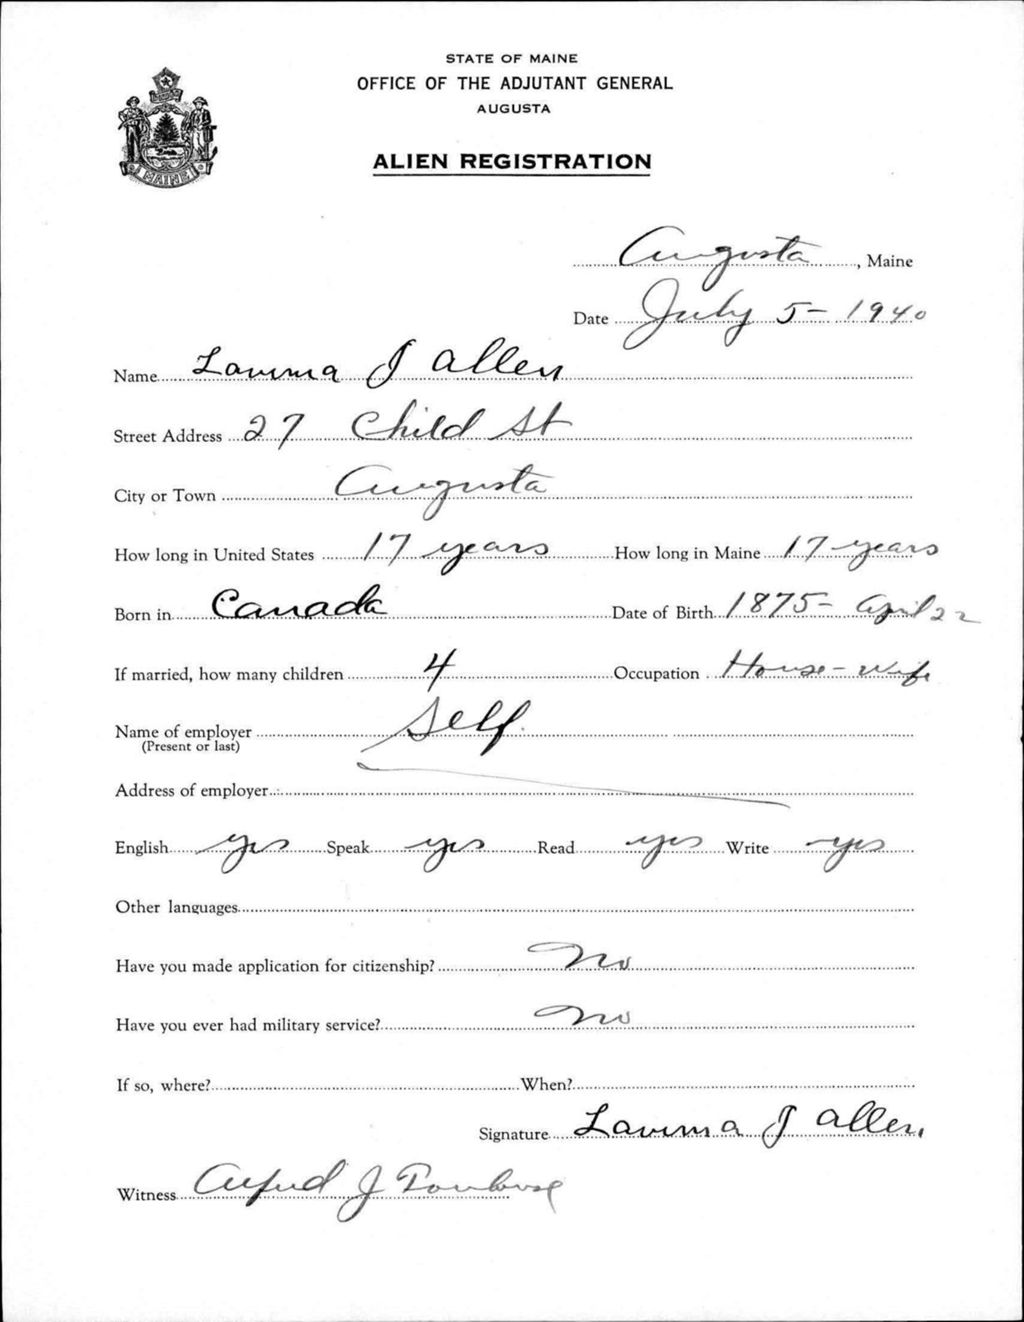 STATE OF MAINE
OFFICE OF THE ADJUTANT GENERAL
AUGUSTA
ALIEN REGISTRATION
MAINE
Augusta, Maine
Date July 5 - 1940
Name J Allen
Street Address 27 Child St
City or Town Augusta
How long in United States 17 years How long in Maine 17 years
Born in Canada Date of Birth 1875 - April 22
If married, how many children 4 Occupation House-wife
Name of employer Self
(Present or last)
Address of employer
English yes Speak yes Read yes Write yes
Other languages
Have you made application for citizenship? No
Have you ever had military service? No
If so, where? When?
Signature J Allen
Witness Alfred J